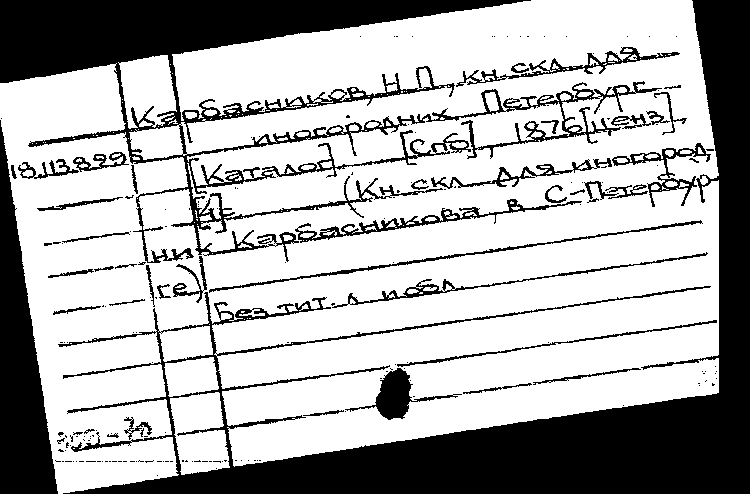 Карбасников, Н П, кн. скл. для
иногородних. Петербург.
18.113.8.995 [Каталог]. [Спб], 1876 [ценз],
[4] с (Кн. скл. для иногород-
ник Карбасникова, в С-Петербур-
ге)
Без тит. л. и обл.
300-70